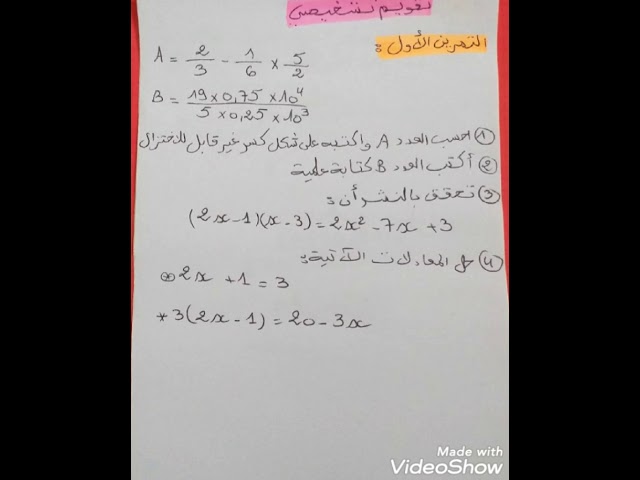 تقويم تشخيصي
التمرين الأول :
A = 2/3 - 1/6 × 5/2
B = (19 × 0,75 × 10⁴)/(5 × 0,25 × 10³)
① احسب العدد A واكتبه على شكل كسر غير قابل للاختزال
② أكتب العدد B كتابة علمية
③ تحقق بالنشر أن :
(2x-1)(x-3) = 2x² - 7x + 3
④ حل المعادلات الآتية :
* 2x + 1 = 3
* 3(2x - 1) = 20 - 3x
Made with
VideoShow